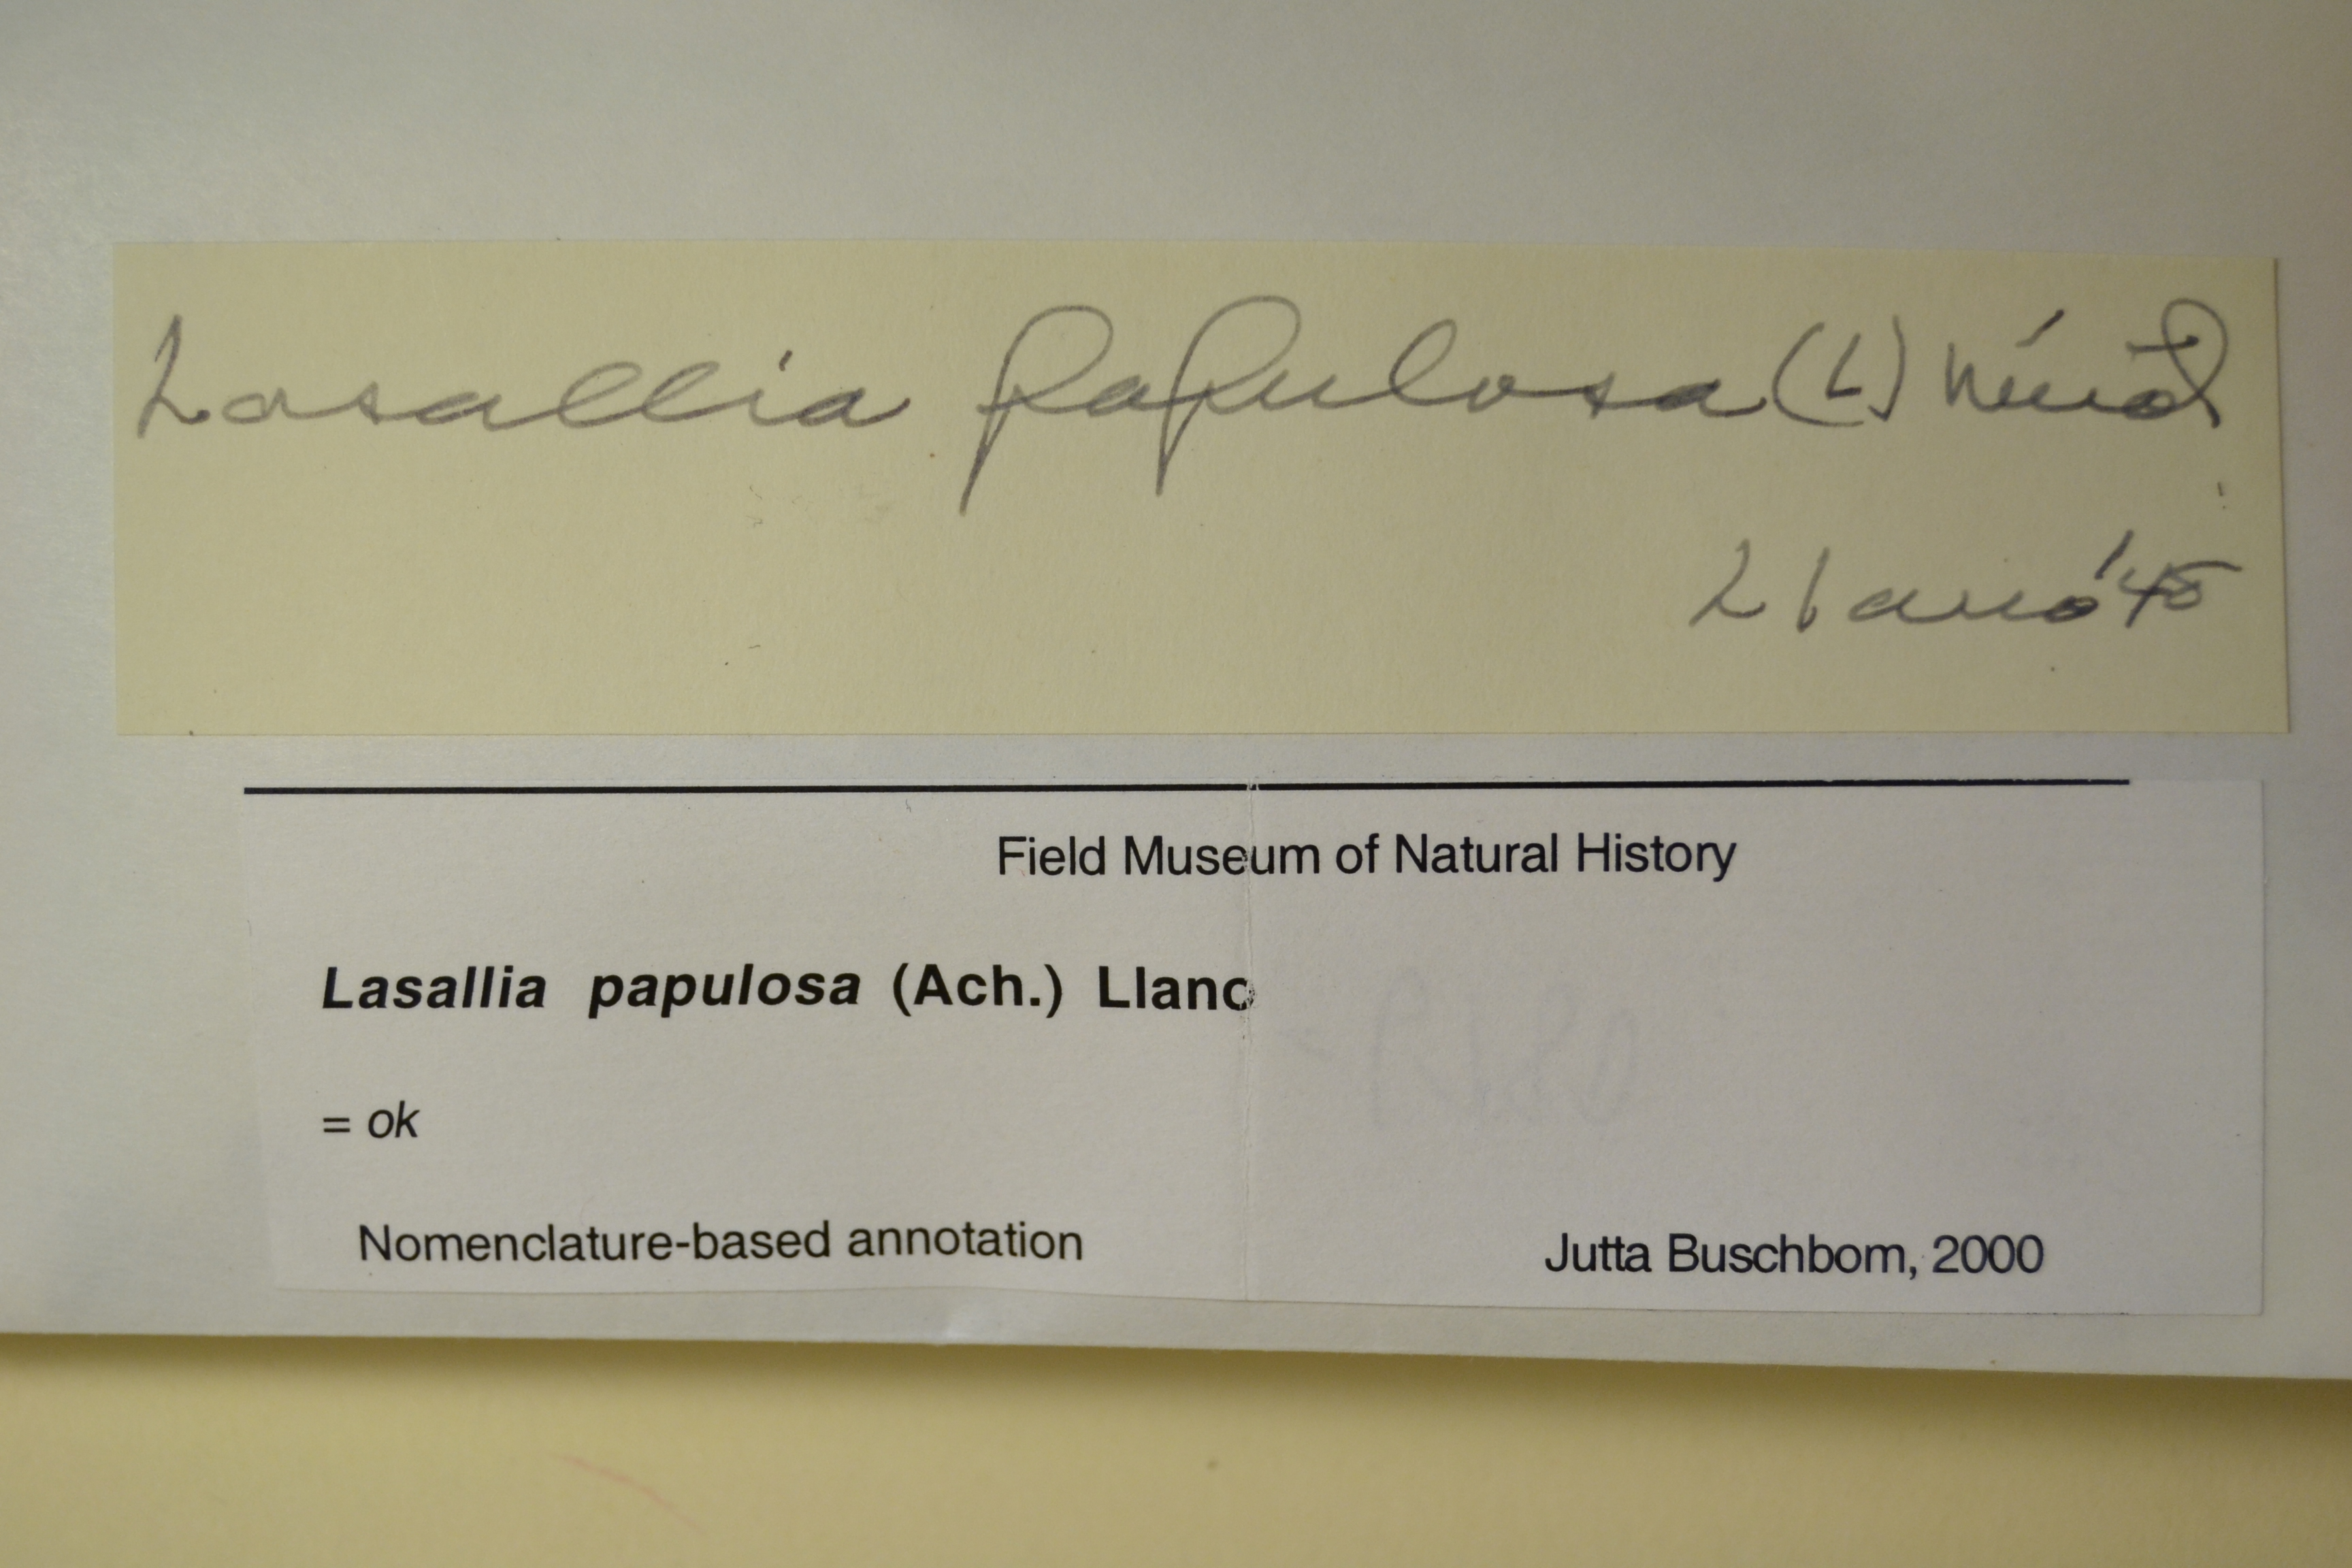 Lasallia papulosa (L)
Llano '48
Field Museum of Natural History
Lasallia papulosa (Ach.) Llano
= ok
Nomenclature-based annotation
Jutta Buschbom, 2000